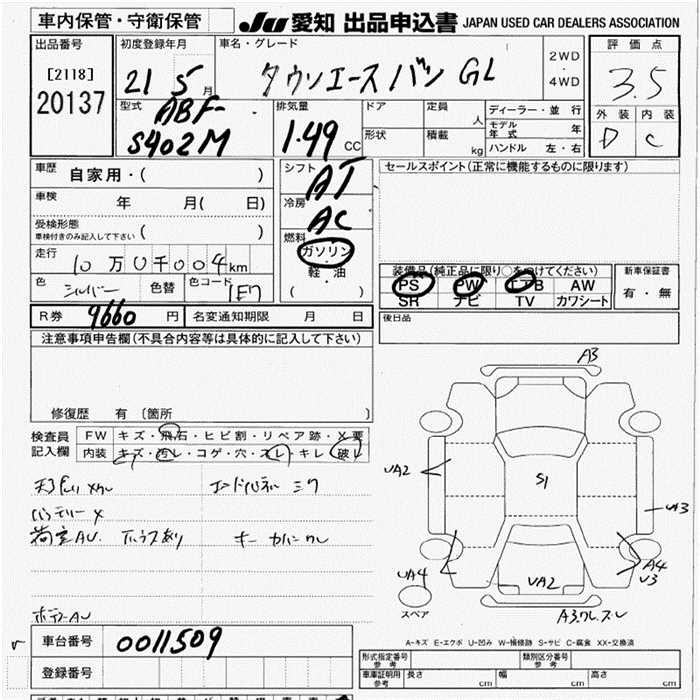 車内保管・守衛保管
JU 愛知 出品申込書 JAPAN USED CAR DEALERS ASSOCIATION
出品番号
[2118]
20137
初度登録年月
21 5 月
車名・グレード
タウンエースバン GL
2WD
・
4WD
評価点
3.5
外装 内装
D C
型式
ABF-
S402M
排気量
1.49 CC
ドア
形状
定員 人
積載 kg
ディーラー・並行
モデル年式 年
ハンドル 左・右
車歴
自家用・( )
車検
年 月( 日)
受検形態
車検付きのみ記入して下さい ( )
走行
10万0千004km
色
シルバー
色替
色コード
1E7
シフト
AT
冷房
AC
燃料
ガソリン
軽・油
( )
セールスポイント(正常に機能するものに限ります)
装備品(純正品に限り○をつけてください)
PS PW エアB AW
SR ナビ TV カワシート
新車保証書
有・無
R券 9660 円
名変通知期限 月 日
後日品
注意事項申告欄(不具合内容等は具体的に記入して下さい)
修復歴 有 〔箇所 〕
検査員
記入欄
FW キズ・飛石・ヒビ割・リペア跡・X要
内装 キズ・汚レ・コゲ・穴・スレ・キレ・破レ
バッテリーX
荷室AU. 下ハラスあり
キーカバンクレ
ボデーAU
A3
UA2
S1
U3
UA4
UA2
A4
U3
スペア
A3クレ.スレ
A-キズ E-エクボ U-凹み W-補修跡 S-サビ C-腐食 XX-交換済
車台番号 0011509
登録番号
形式指定番号
参考
類別区分番号
参考
車庫証明用
参考
長さ cm
幅 cm
高さ cm